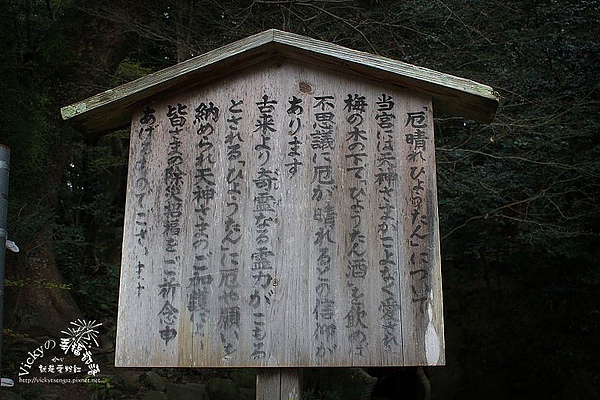 「厄晴れひょうたん」について
当宮には天神さまがこよなく愛され
梅の木の下でひょうたん酒を飲めば
不思議に厄が晴れるとの信仰が
あります
古来より奇霊なる霊力がこもる
とされる「ひょうたん」に厄や願いを
納められ天神さまのご加護により
皆さまの防災招福をご祈念申
あげるものでございます
Vickyの幸福
http://vickytsengiu.pixnet.net